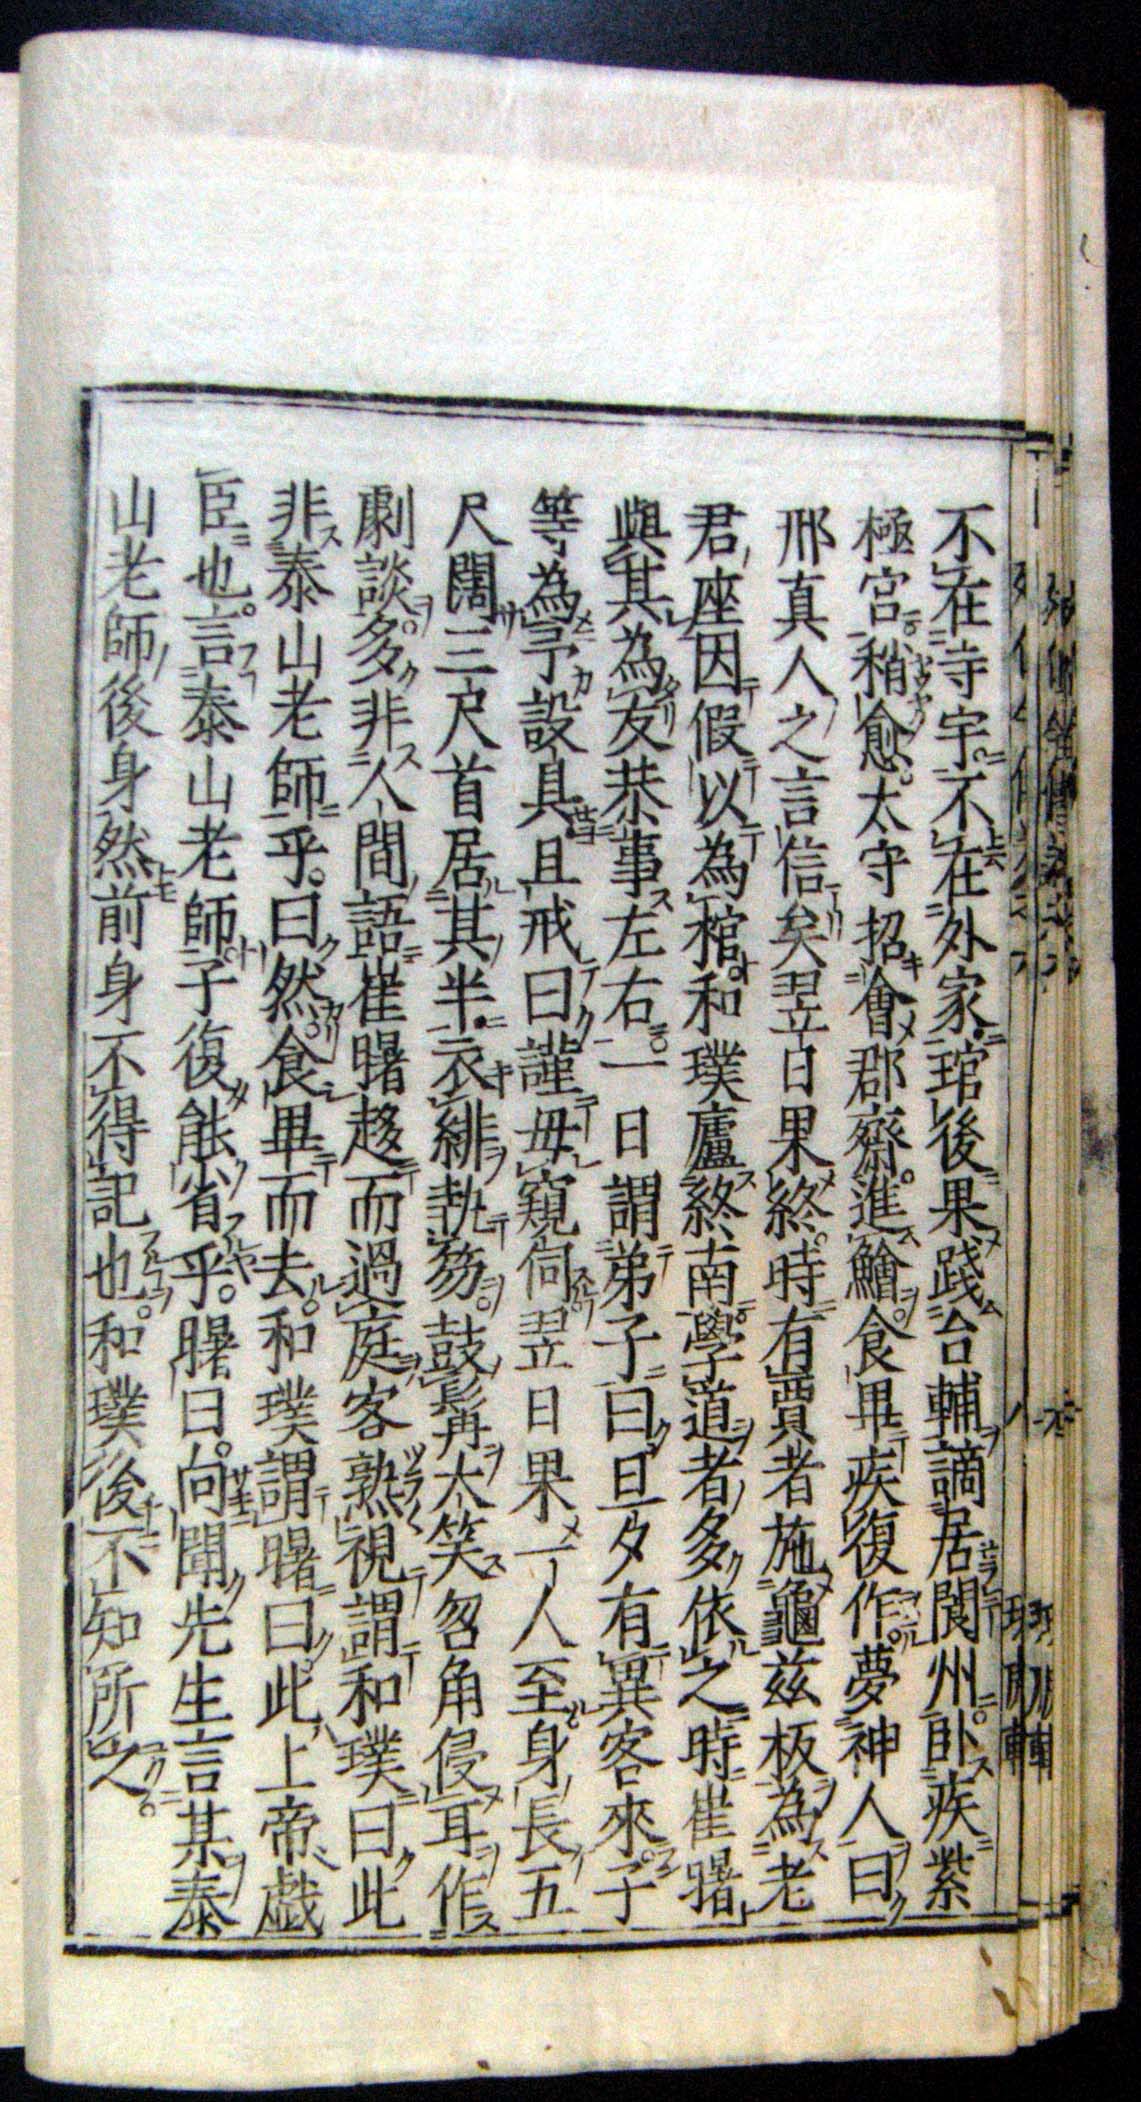 不在寺宇不在外家琯後果踐台輔謫居閬州卧疾紫
極宮稍愈太守招會郡齋進鱠食畢疾復作夢神人曰
邢真人之言信矣翌日果終時有賈者施龜茲板為老
君座因假以為棺和璞廬終南學道者多依之時崔曙
與其為友恭事左右一日謂弟子曰旦夕有異客來子
等為予設具且戒曰謹毋窺伺翌日果一人至身長五
尺闊三尺首居其半衣緋執笏鼓髯大笑匆角侵耳作
劇談多非人間語崔曙趍而過庭客熟視謂和璞曰此
非泰山老師乎曰然食畢而去和璞謂曙曰此上帝戯
臣也言泰山老師子復能省乎曙曰向聞先生言某泰
山老師後身然前身不得記也和璞後不知所之